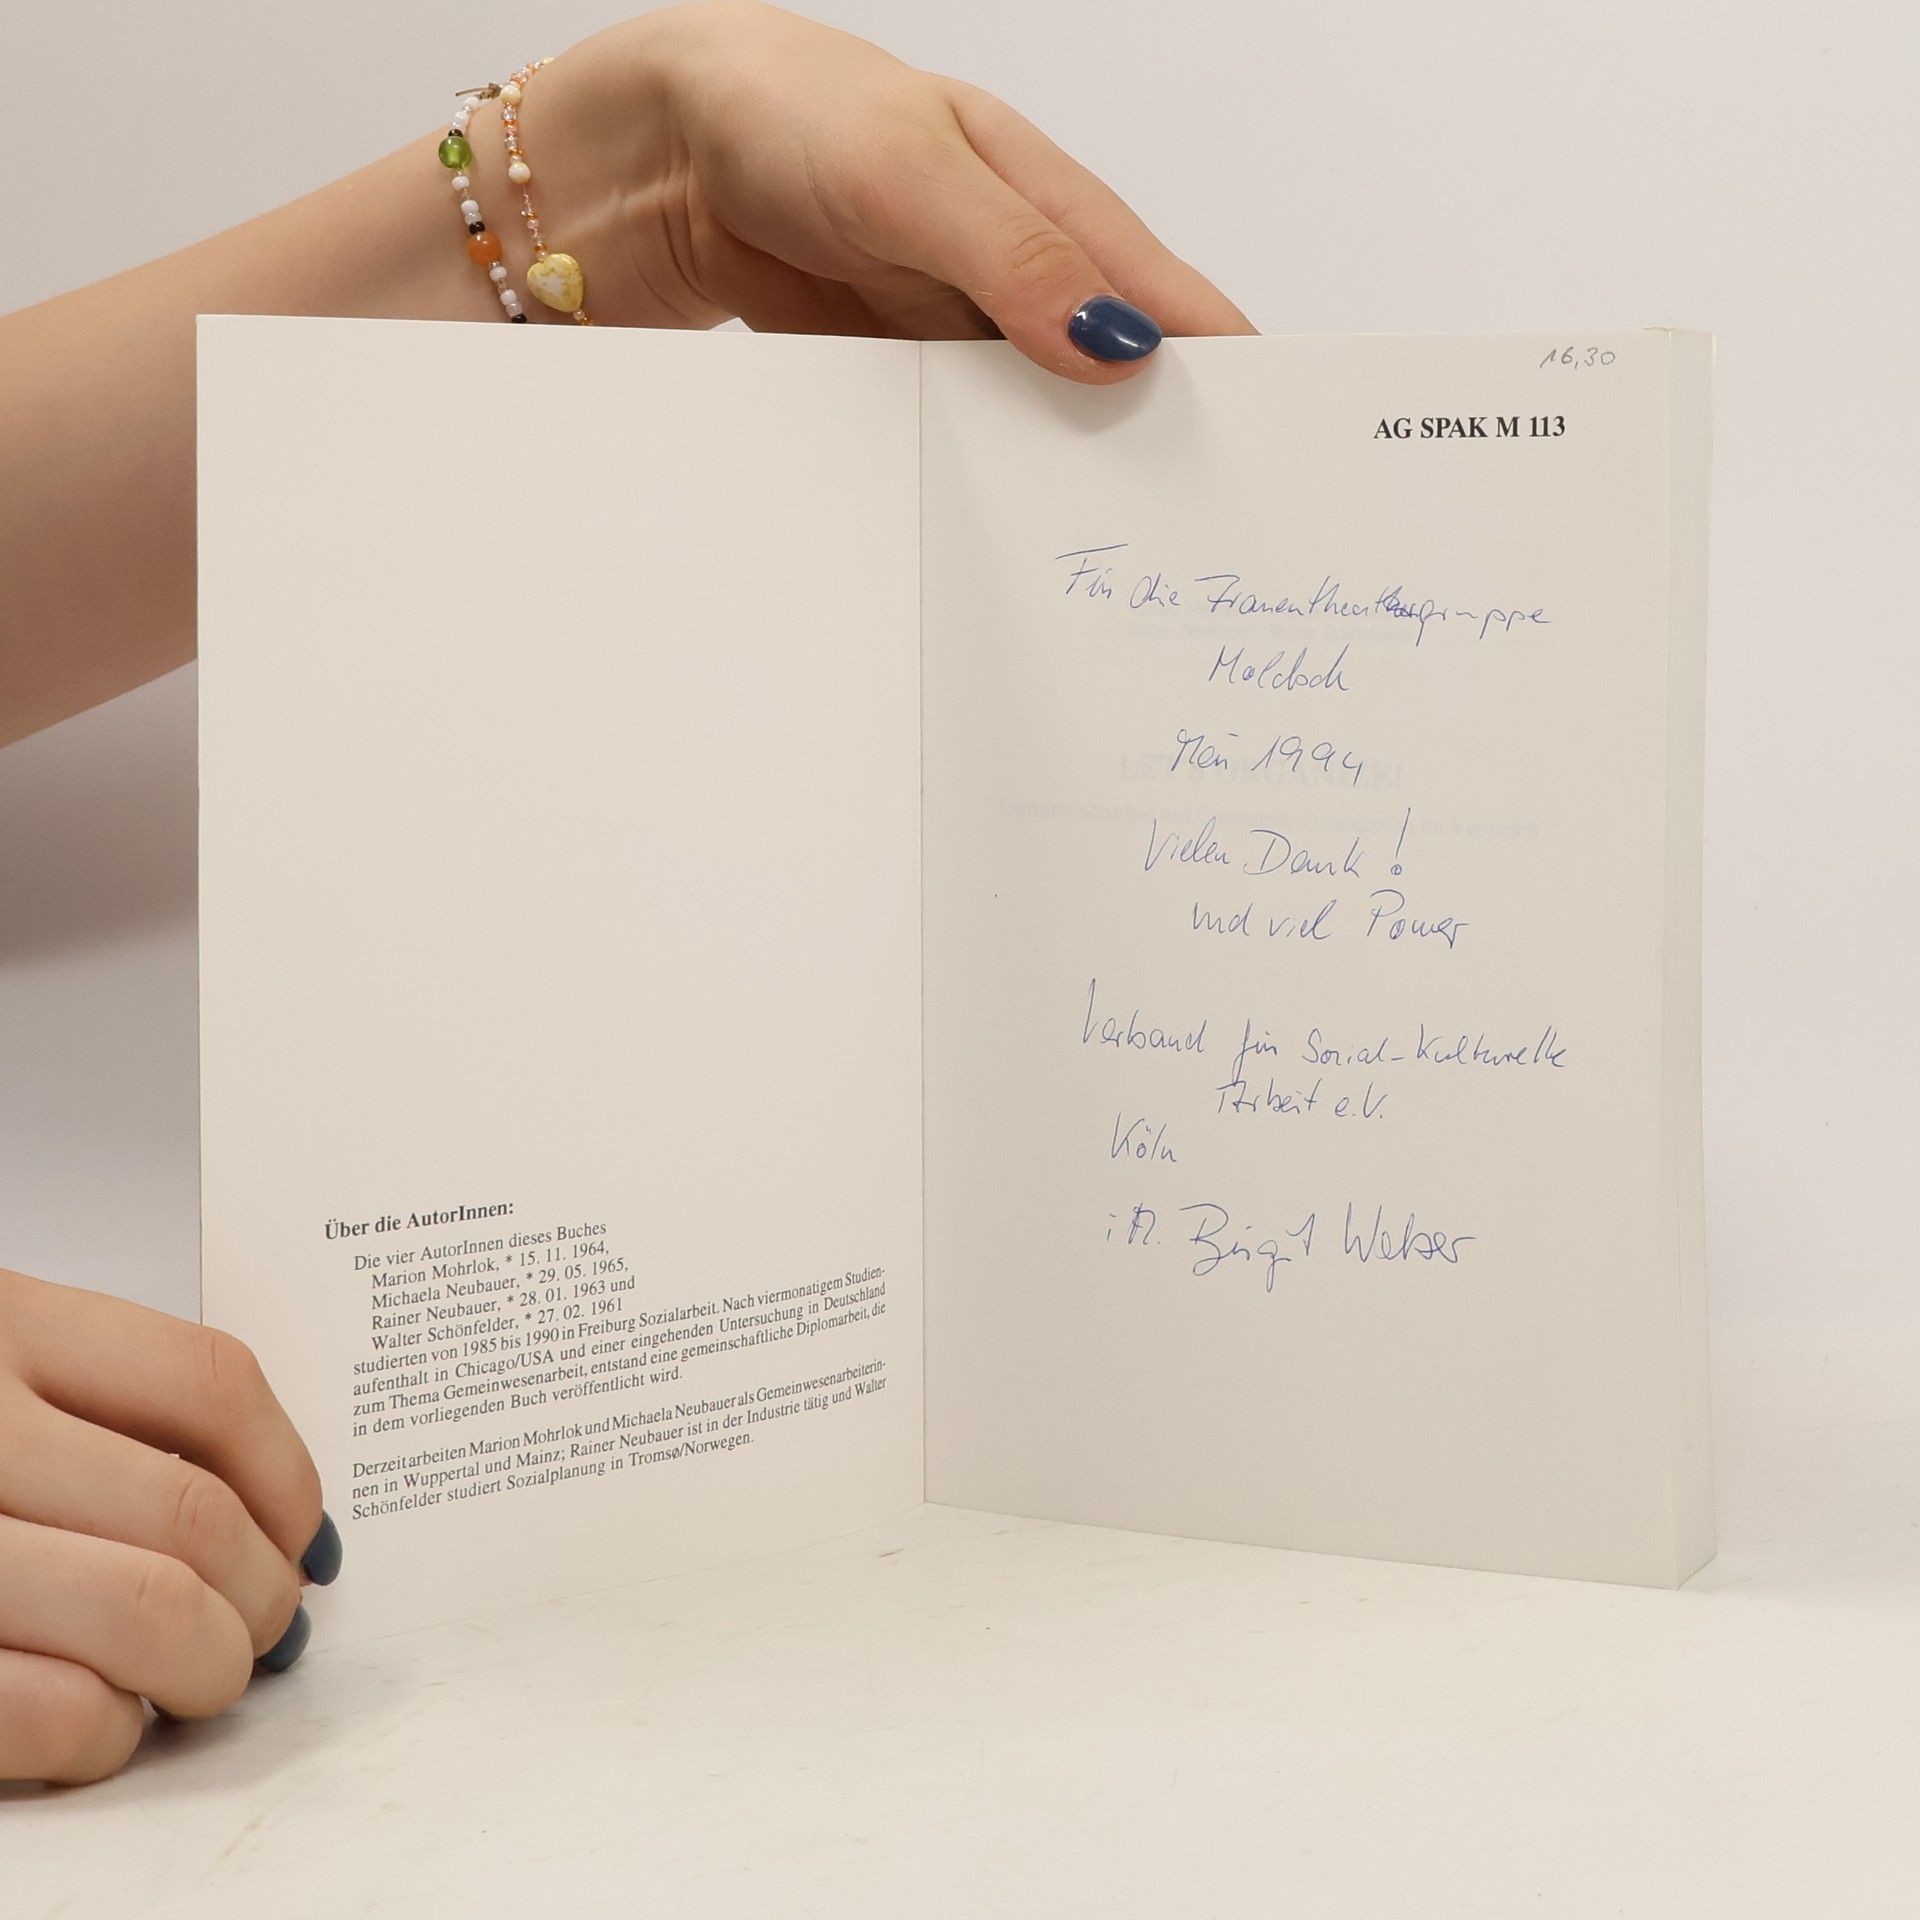 Über die AutorInnen:
Die vier AutorInnen dieses Buches
Marion Mohrlok, * 15. 11. 1964,
Michaela Neubauer, * 29. 05. 1965,
Rainer Neubauer, * 28. 01. 1963 und
Walter Schönfelder, * 27. 02. 1961
studierten von 1985 bis 1990 in Freiburg Sozialarbeit. Nach viermonatigem Studien-
aufenthalt in Chicago/USA und einer eingehenden Untersuchung in Deutschland
zum Thema Gemeinwesenarbeit, entstand eine gemeinschaftliche Diplomarbeit, die
in dem vorliegenden Buch veröffentlicht wird.
Derzeit arbeiten Marion Mohrlok und Michaela Neubauer als Gemeinwesenarbeiterin-
nen in Wuppertal und Mainz; Rainer Neubauer ist in der Industrie tätig und Walter
Schönfelder studiert Sozialplanung in Tromsø/Norwegen.
16,30
AG SPAK M 113
Für die Frauentheatergruppe
Mai 1994
Vielen Dank!
und viel Power
Verband für Sozial-Kulturelle
Arbeit e.V.
Köln
i.A. Birgit Weber